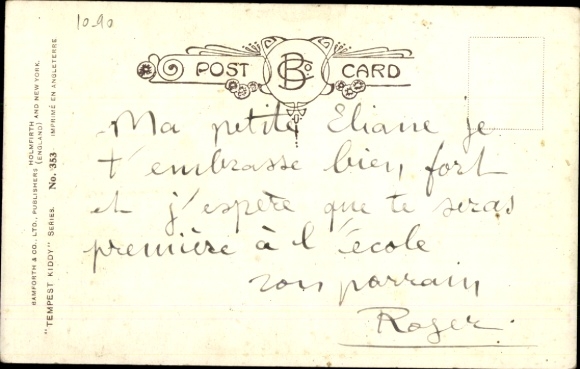 10-90
POST CARD
B Co
Ma petite Eliane je
t'embrasse bien fort
et j'espère que te seras
première à l'école
ton parrain
Roger.
BAMFORTH & CO., LTD., PUBLISHERS HOLMFIRTH
(ENGLAND) AND NEW YORK.
"TEMPEST KIDDY" SERIES. No. 353 IMPRIMÉ EN ANGLETERRE